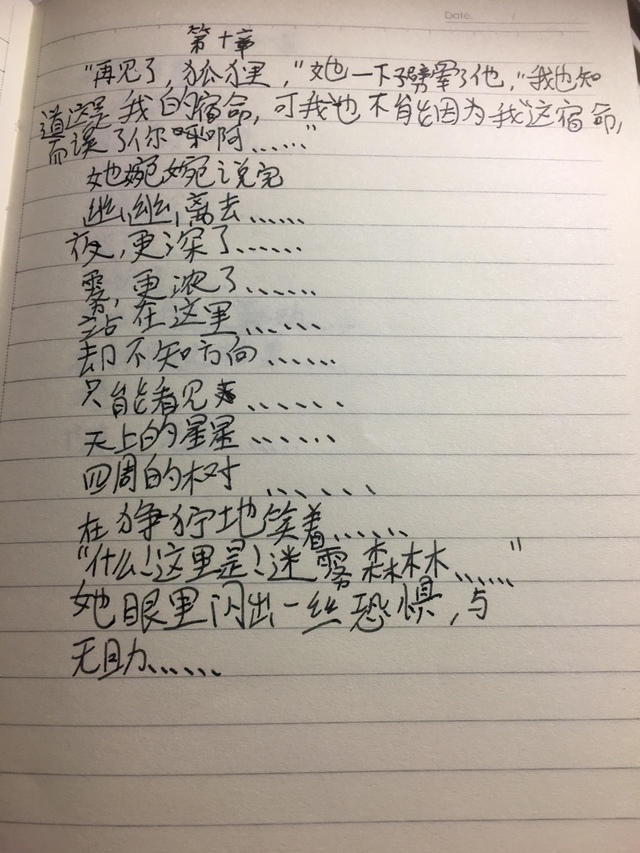 Date.
第十章
"再见了，狐狸，"她一下子劈晕了他，"我也知
道这是我的宿命，可我也不能因为我这宿命，
而误了你呀啊……"
她婉婉说完
幽幽离去……
夜，更深了……
雾，更浓了……
站在这里……
却不知方向……
只能看见……
天上的星星……
四周的树……
在狰狞地笑着……
"什么！这里是！迷雾森林……"
她眼里闪出一丝恐惧，与
无助……